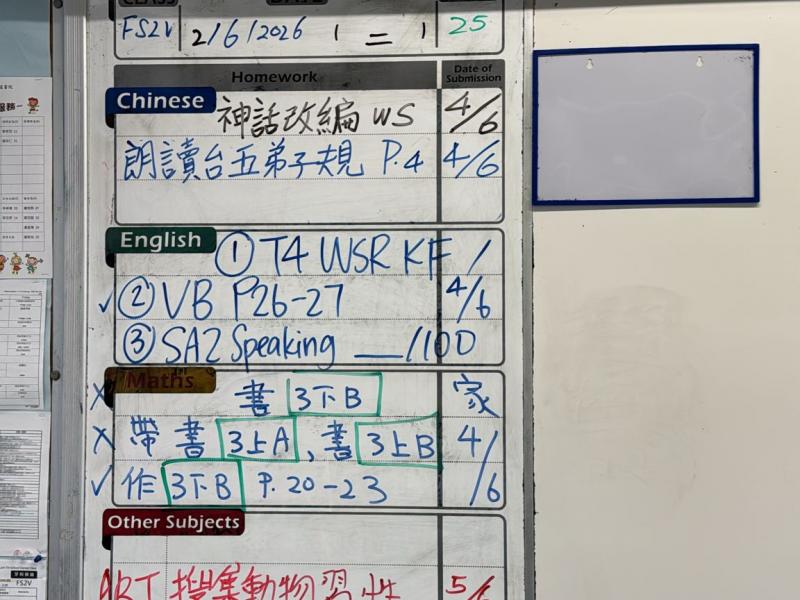 FS2V 2/6/2026 ( 二 ) 25
Homework Date of Submission
Chinese 神話改編 WS 4/6
朗讀台五弟子規 P.4 4/6
English ① T4 WSR KF /
✓ ② VB P26-27 4/6
③ SA2 Speaking __/100
X Maths 書 3下B 家
X 帶書 3上A, 書 3上B 4/6
✓ 作 3下B P.20-23
Other Subjects
ART 搜集動物習性 5/6
FS2V